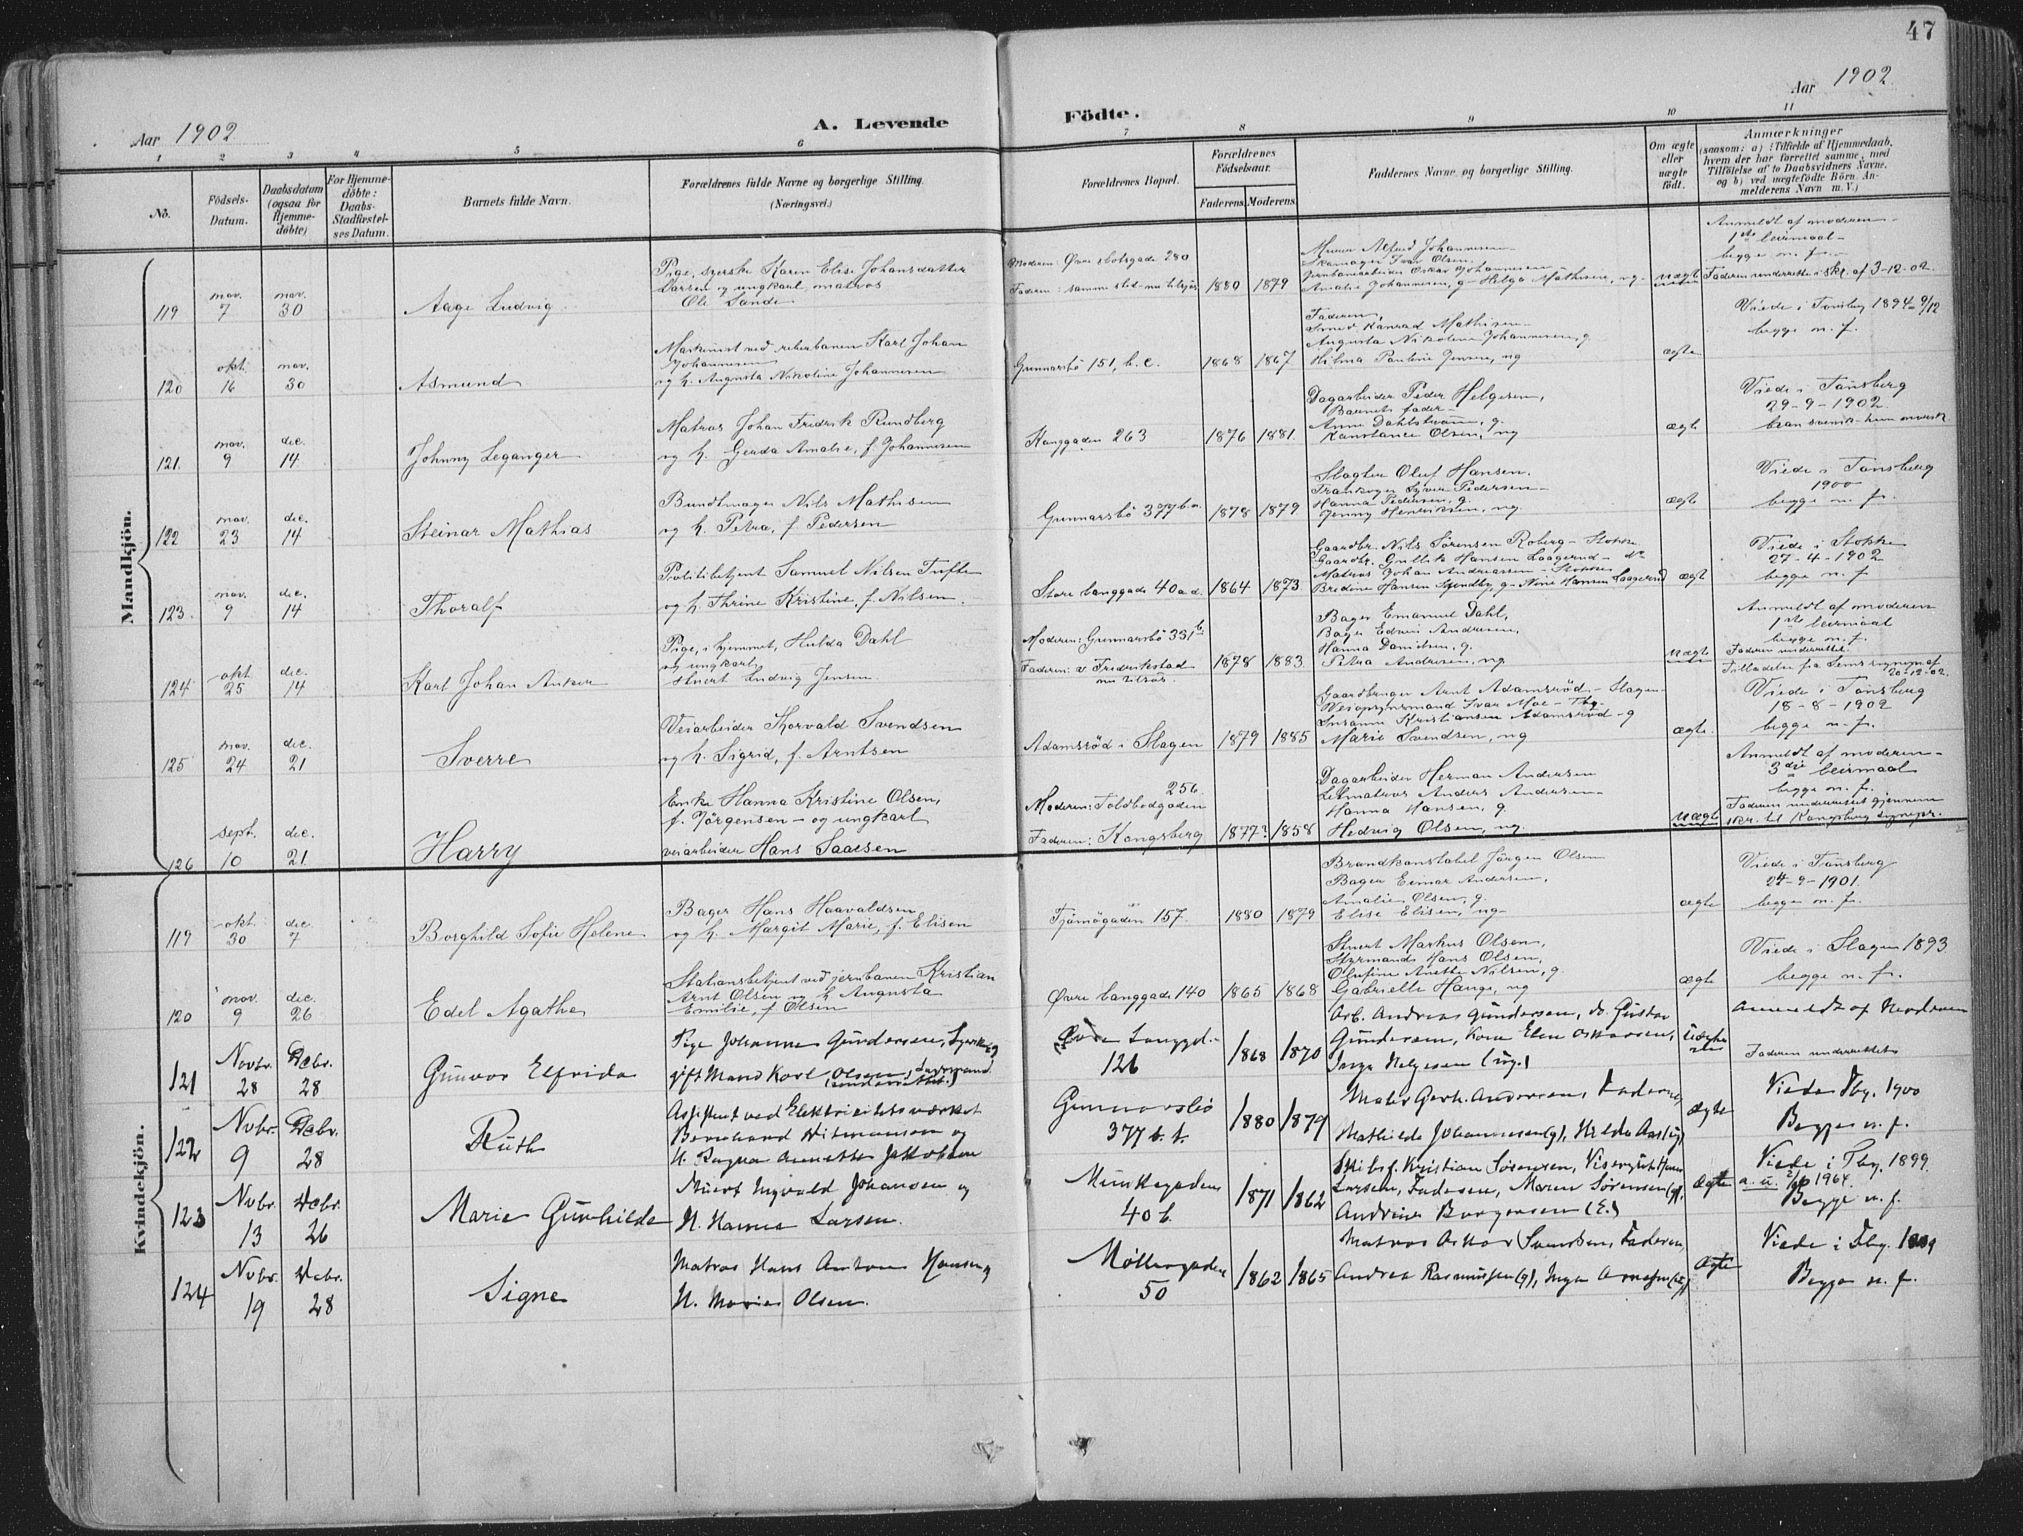 47
Aar 1902
A. Levende
Födte.
Aar 1902
1 2 3 4 5 6 7 8 9 10 11
No.
Födsels-
Datum.
Daabsdatum
(ogsaa for
Hjemme-
döbte)
For Hjemme-
döbte:
Daabs-
Stadfæstel-
ses Datum.
Barnets fulde Navn.
Forældrenes fulde Navne og borgerlige Stilling.
(Næringsvei.)
Forældrenes Bopæl.
Forældrenes
Födselsaar.
Faderens
Moderens
Faddernes Navne og borgerlige Stilling.
Om ægte
eller
uægte
födt.
Anmærkninger
(saasom: a) i Tilfælde af Hjemmedaab,
hvem der har forrettet samme, med
Tilföielse af to Daabsvidners Navne.
og b) ved uægtefödte Börn, An-
melderens Navn m. V.)
Mandkjön.
119
nov.
7
nov.
30
Aage Ludvig
Pige, syerske Karen Elise Johansdatter
Larsen og ungkarl, matros
Ole Sande
Moderen: Övre slotsgade 280
Faderen: samme sted
1880
1879
Murer Alfred Johannesen
Skomager Ivar Olsen
Jernbanearbeider Oskar Johannesen
Amalie Johannesen, g - Helga Mathisen, ug.
uægte
Anmeldt af moderen -
1ste leirmaal -
begge n. f. -
Faderen underrettet i skr. af 3-12-02.
120
okt.
16
nov.
30
Asmund
Maskinist ved reberbanen Karl Johan
Johannesen
og h. Augusta Nikoline Johannesen
Gunnarsbö 151, b. c.
1868
1867
Faderen,
Smed Konrad Mathisen
Augusta Nikoline Johannesen, g
Hilma Pauline Jensen, ug
ægte
Viede i Tönsberg 1894 - 9/12
begge n. f.
121.
nov.
9
dec.
14
Johnny Leganger
Matros Johan Fredrik Rundberg
og h. Gerda Amalie, f. Johannesen
Konggaden 263
1876
1881.
Dagarbeider Peder Helgesen,
Barnets fader -
Anne Dahlström, g.
Konstance Olsen, ug
ægte
Viede i Tönsberg
29-9-1902.
han svensk - hun norsk
122
nov.
23
dec.
14
Steinar Mathias
Bundtmager Nils Mathisen
og h. Petra, f. Pedersen
Gunnarsbö 377 b.
1878
1879
Slagter Oluf Hansen.
Hanna Pedersen, g.
Jenny Henriksen, ug.
ægte
Viede i Tönsberg
1900
begge n. f.
123.
nov.
9
dec.
14
Thoralf
Politibetjent Samuel Nilsen Tufte
og h. Thrine Kristine, f. Nilsen.
Store langgade 40 a.d.
1864
1873.
Gaardbr. Nils Sörensen Roberg - Stokke
Gaardbr. Gullik Hansen Laagerud - do
Matros Johan Andreassen - Stokke
Bredine Hansen, g - Nine Hansen Laagerud
ægte
Viede i Stokke
27-4-1902
begge n. f
124
okt
25
dec.
14
Karl Johan Anker
Pige, i hjemmet, Hulda Dahl
og ungkarl,
Stuert Ludvig Jensen
Moderen: Gunnarsbö 331 b.
Faderen: Fredrikstad
nu tilsös.
1878
1883.
Bager Emanuel Dahl,
Bager Edvin Andresen,
Hanna Danielsen, g.
Petra Andresen, ug.
uægte
Anmeldt af moderen
1ste leirmaal
begge n. f.
Faderen underrettet.
Tilladelse fra Sems sogn af
20-12-02.
125
nov.
24
dec.
21
Sverre
Veiarbeider Thorvald Svendsen
og h. Sigrid, f. Arntsen
Adamsröd i Slagen
1879
1885
Gaardbruger Arnt Adamsröd - Slagen
Veiopsynsmand Ivar Moe - Tbg.
Susanne Kristiansen Adamsröd - g
Marie Svendsen, ug
ægte.
Viede i Tönsberg
18-8-1902
begge n. f.
126
sept.
10
dec.
21.
Harry
Enke Hanna Kristine Olsen,
f. Jörgensen - og ungkarl
veiarbeider Hans Saaesen
Moderen: Toldbodgaden 256.
Faderen: Kongsberg
1877?
1858
Dagarbeider Herman Andersen
Letmatros Anders Andersen -
Hanna Hansen, g.
Hedvig Olsen, ug.
uægte
Anmeldt af moderen -
3die leirmaal
begge n. f.
Faderen underrettet gjennem
skr. til Kongsberg sognepr.
Kvindekjön.
119
okt.
30
dec.
7
Borghild Sofie Helene
Bager Hans Haavaldsen
og h. Margit Marie, f. Elisen
Tjömögaden 157.
1880
1879
Brandkonstabel Jörgen Olsen
Bager Eimar Andersen,
Amalie Olsen, g.
Elise Elisen, ug
ægte
Viede i Tönsberg
24-9-1901.
begge n. f.
120
nov.
9
dec.
26
Edel Agathe
Stationsbetjent ved jernbanen Kristian
Arnt Olsen og h. Augusta
Emilie, f. Olsen
Övre langgade 140
1865
1868
Stuert Markus Olsen,
Styrmand Hans Olsen,
Olufine Anette Nilsen, g.
Gabrielle Hauge, ug
ægte
Viede i Slagen 1893
begge n. f.
121
Novbr.
28
Decbr.
28
Gunvor Elfrida
Pige Johanne Gundersen, Syerske,
gift Mand Karl Olsen,
(underrettet.)
Övre Langgd.
126
1868
1870
Arb. Andreas Gundersen, do. Gustav
Gundersen, Kone Elen Oskarsen,
Inga Helgesen (ug.)
uægte
Anmeldt af Moderen
Faderen underrettet
122
Novbr.
9
Decbr.
28
Ruth
Assistent ved Elektricitetsværket
Bernhard Ditmansen og
H. Dagna Annette Jakobsen
Gunnarsbö
377 b. f.
1880
1879
Maler Gerh. Andersen, Faderen,
Mathilde Johannesen (g), Hilda Aasly
ægte
Viede Tbg. 1900
Begge n. f.
123
Novbr.
13
Decbr.
26
Marie Gunhilde
Stuert Ingvald Johansen og
H. Hanna Larsen.
Munkegaden
40 b.
1871
1862
Skibsf. Kristian Sörensen,
Larsen, Faderen, Maren Sörensen (g),
Andrine Borgersen (E.)
ægte
Viede i Tbg. 1899.
a. u. 1964.
Begge n. f.
124
Novbr.
19
Decbr.
28
Signe
Matros Hans Anton Hansen og
H. Marie Olsen.
Møllergaden
50
1862
1865
Matros Oskar Svendsen, Faderen,
Andrea Rasmussen (g), Inga
ægte
Viede i Tbg.
Begge n. f.